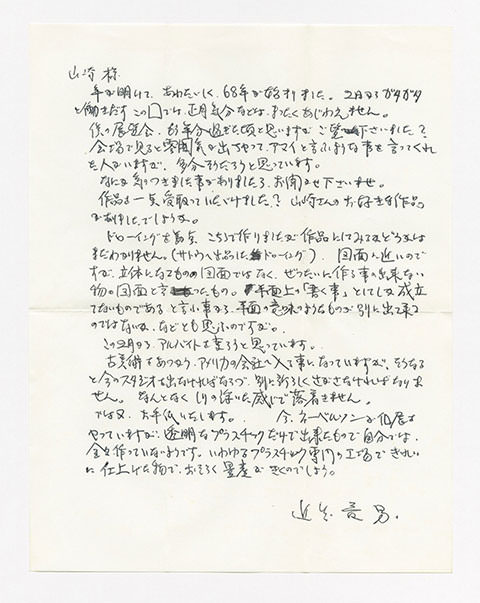 山崎様
年が明けて、あわただしく、68年が始まりました。2日からガタガタ
と働きだすこの国では、正月気分などは、まったくあじわえません。
僕の展覧会、もう半分過ぎた頃と思いますが ご覧下さいました?
会場で見ると雰囲気が出ちゃって、アマイと言ふような事を言ってくれ
た人がいますが、多分そうだろうと思っています。
なにか気のつきました事がありましたら、お聞かせ下さいませ。
作品は一点受取っていただけました? 山崎さんのお好きな作品
がありましたでしょうか。
ドローイングを 点、こちらで作りましたが 作品にしてみるかどうかは
まだわかりません。(サトウへ出品したドローイング)、図面に近いので
すが、立体になるものの図面ではなく、ぜったいに作る事の出来ない
物の図面と言ったもの。平面上の「書く事」としてしか成立
てないものである と言ふ事から、平面の意味のようなものが別に出て来る
のではないか、などとも思ふのですが。
この2月から、アルバイトを変ろうと思っています。
古美術をあつかう、アメリカの会社へ入る事になっていますが、そうなる
と今のスタジオも出なければならづ、別に新らしくさがさなければなりま
せん。なんとなく しりの浮いた感じで落着きません。
では又、お手紙いたします。 今、ネーベルソンが個展を
やっていますが、透明なプラスチックだけで出来たもので自分では、
全々作っていないようです。いわゆるプラスチック専門の工場できれい
に仕上げた物で、おそらく量産がきくのでしょう。
近 男.